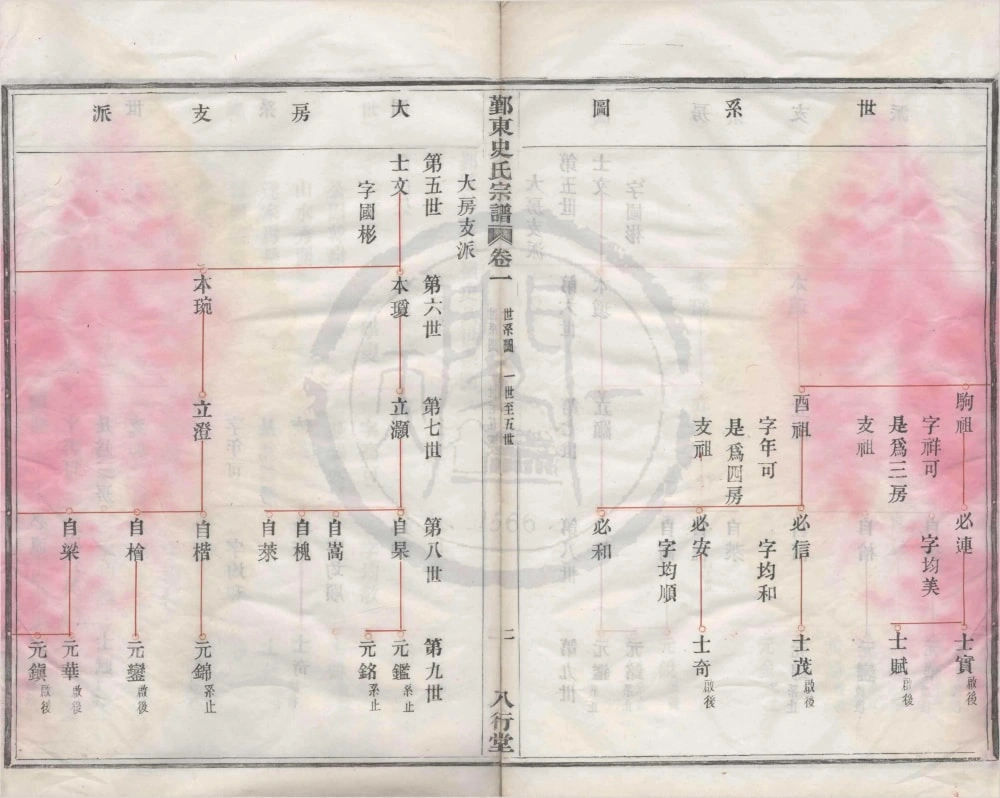 世系圖
駒祖
字祥可
是爲三房
支祖
酉祖
字年可
是爲四房
支祖
必連
字均美
必信
字均和
必安
字均順
必和
士實 啟後
士賦 啟後
士茂 啟後
士奇 啟後
鄞東史氏宗譜 卷一 世系圖 一世至五世 二 八行堂
大房支派
大房支派
第五世
士文
字國彬
第六世
本瓊
本琬
第七世
立灝
立澄
第八世
自杲
自嵩
自槐
自榮
自楷
自檜
自梁
第九世
元鑑 系止
元銘 系止
元錦 系止
元鑾 啟後
元華 啟後
元鎭 啟後